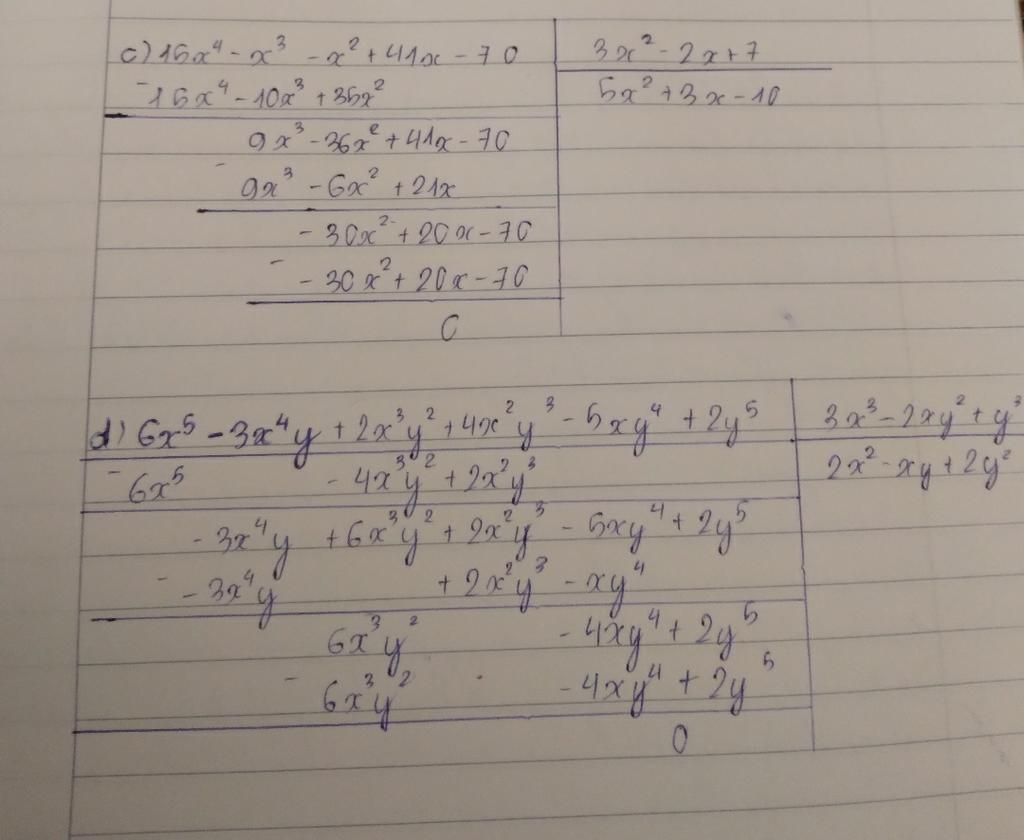 c) 15x⁴ - x³ - x² + 41x - 70 | 3x² - 2x + 7
- 15x⁴ - 10x³ + 35x² | 5x² + 3x - 10
9x³ - 36x² + 41x - 70
- 9x³ - 6x² + 21x
- 30x² + 20x - 70
- - 30x² + 20x - 70
0
d) 6x⁵ - 3x⁴y + 2x³y² + 4x²y³ - 5xy⁴ + 2y⁵ | 3x³ - 2xy² + y³
- 6x⁵ - 4x³y² + 2x²y³ | 2x² - xy + 2y²
- 3x⁴y + 6x³y² + 2x²y³ - 5xy⁴ + 2y⁵
- - 3x⁴y + 2x²y³ - xy⁴
6x³y² - 4xy⁴ + 2y⁵
- 6x³y² - 4xy⁴ + 2y⁵
0